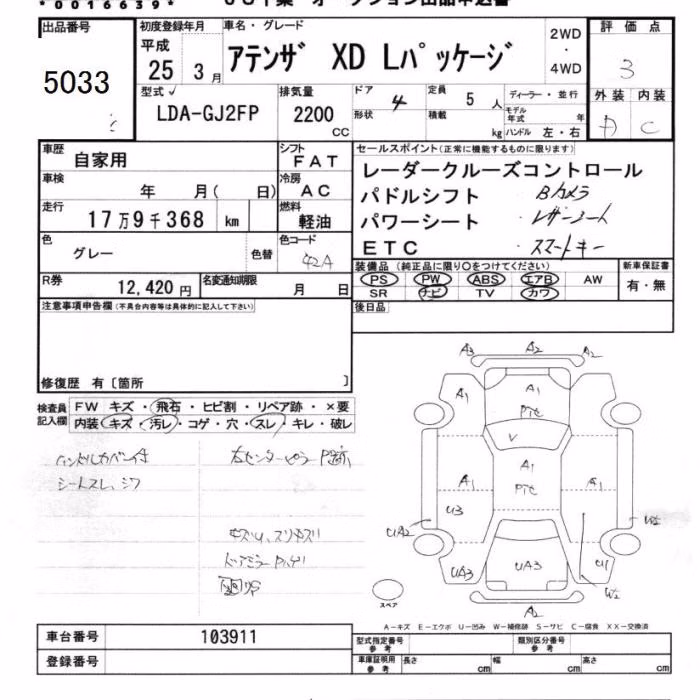 *0016639*
出品番号
5033
初度登録年月
平成
25 3月
車名・グレード
アテンザ XD Lパッケージ
2WD
・
4WD
評価点
3
型式
LDA-GJ2FP
排気量
2200
CC
ドア
4
形状
定員
5 人
積載
kg
ディーラー・並行
モデル年式 年
ハンドル 左・右
外装 内装
C
車歴
自家用
シフト
FAT
車検
年 月( 日)
冷房
AC
走行
17万9千368 km
燃料
軽油
色
グレー
色替
色コード
42A
R券
12,420 円
名変通知期限
月 日
セールスポイント(正常に機能するものに限ります)
レーダークルーズコントロール
パドルシフト
Bカメラ
パワーシート
レザーシート
ETC
スマートキー
装備品 (純正品に限り〇をつけてください)
PS PW ABS エアB AW
SR ナビ TV カワ
新車保証書
有・無
後日品
注意事項申告欄(不具合内容等は具体的に記入して下さい)
修復歴 有〔箇所 〕
検査員記入欄
FW キズ・飛石・ヒビ割・リペア跡・×要
内装 キズ・汚レ・コゲ・穴・スレ・キレ・破レ
ハンドルカバー付
シートスレ、シワ
右センターピラーP跡
キズU、スリキズ
A3 A2 A2
A1 A1
A1
PTC
V
A1 A1 A1
PTC
U3
UA2
UA3 UA3 U1
W2
A2
スペア
A-キズ E-エクボ U-凹み W-補修跡 S-サビ C-腐食 XX-交換済
車台番号
103911
登録番号
型式指定番号
参考
類別区分番号
参考
車庫証明用
参考
長さ cm
幅 cm
高さ cm